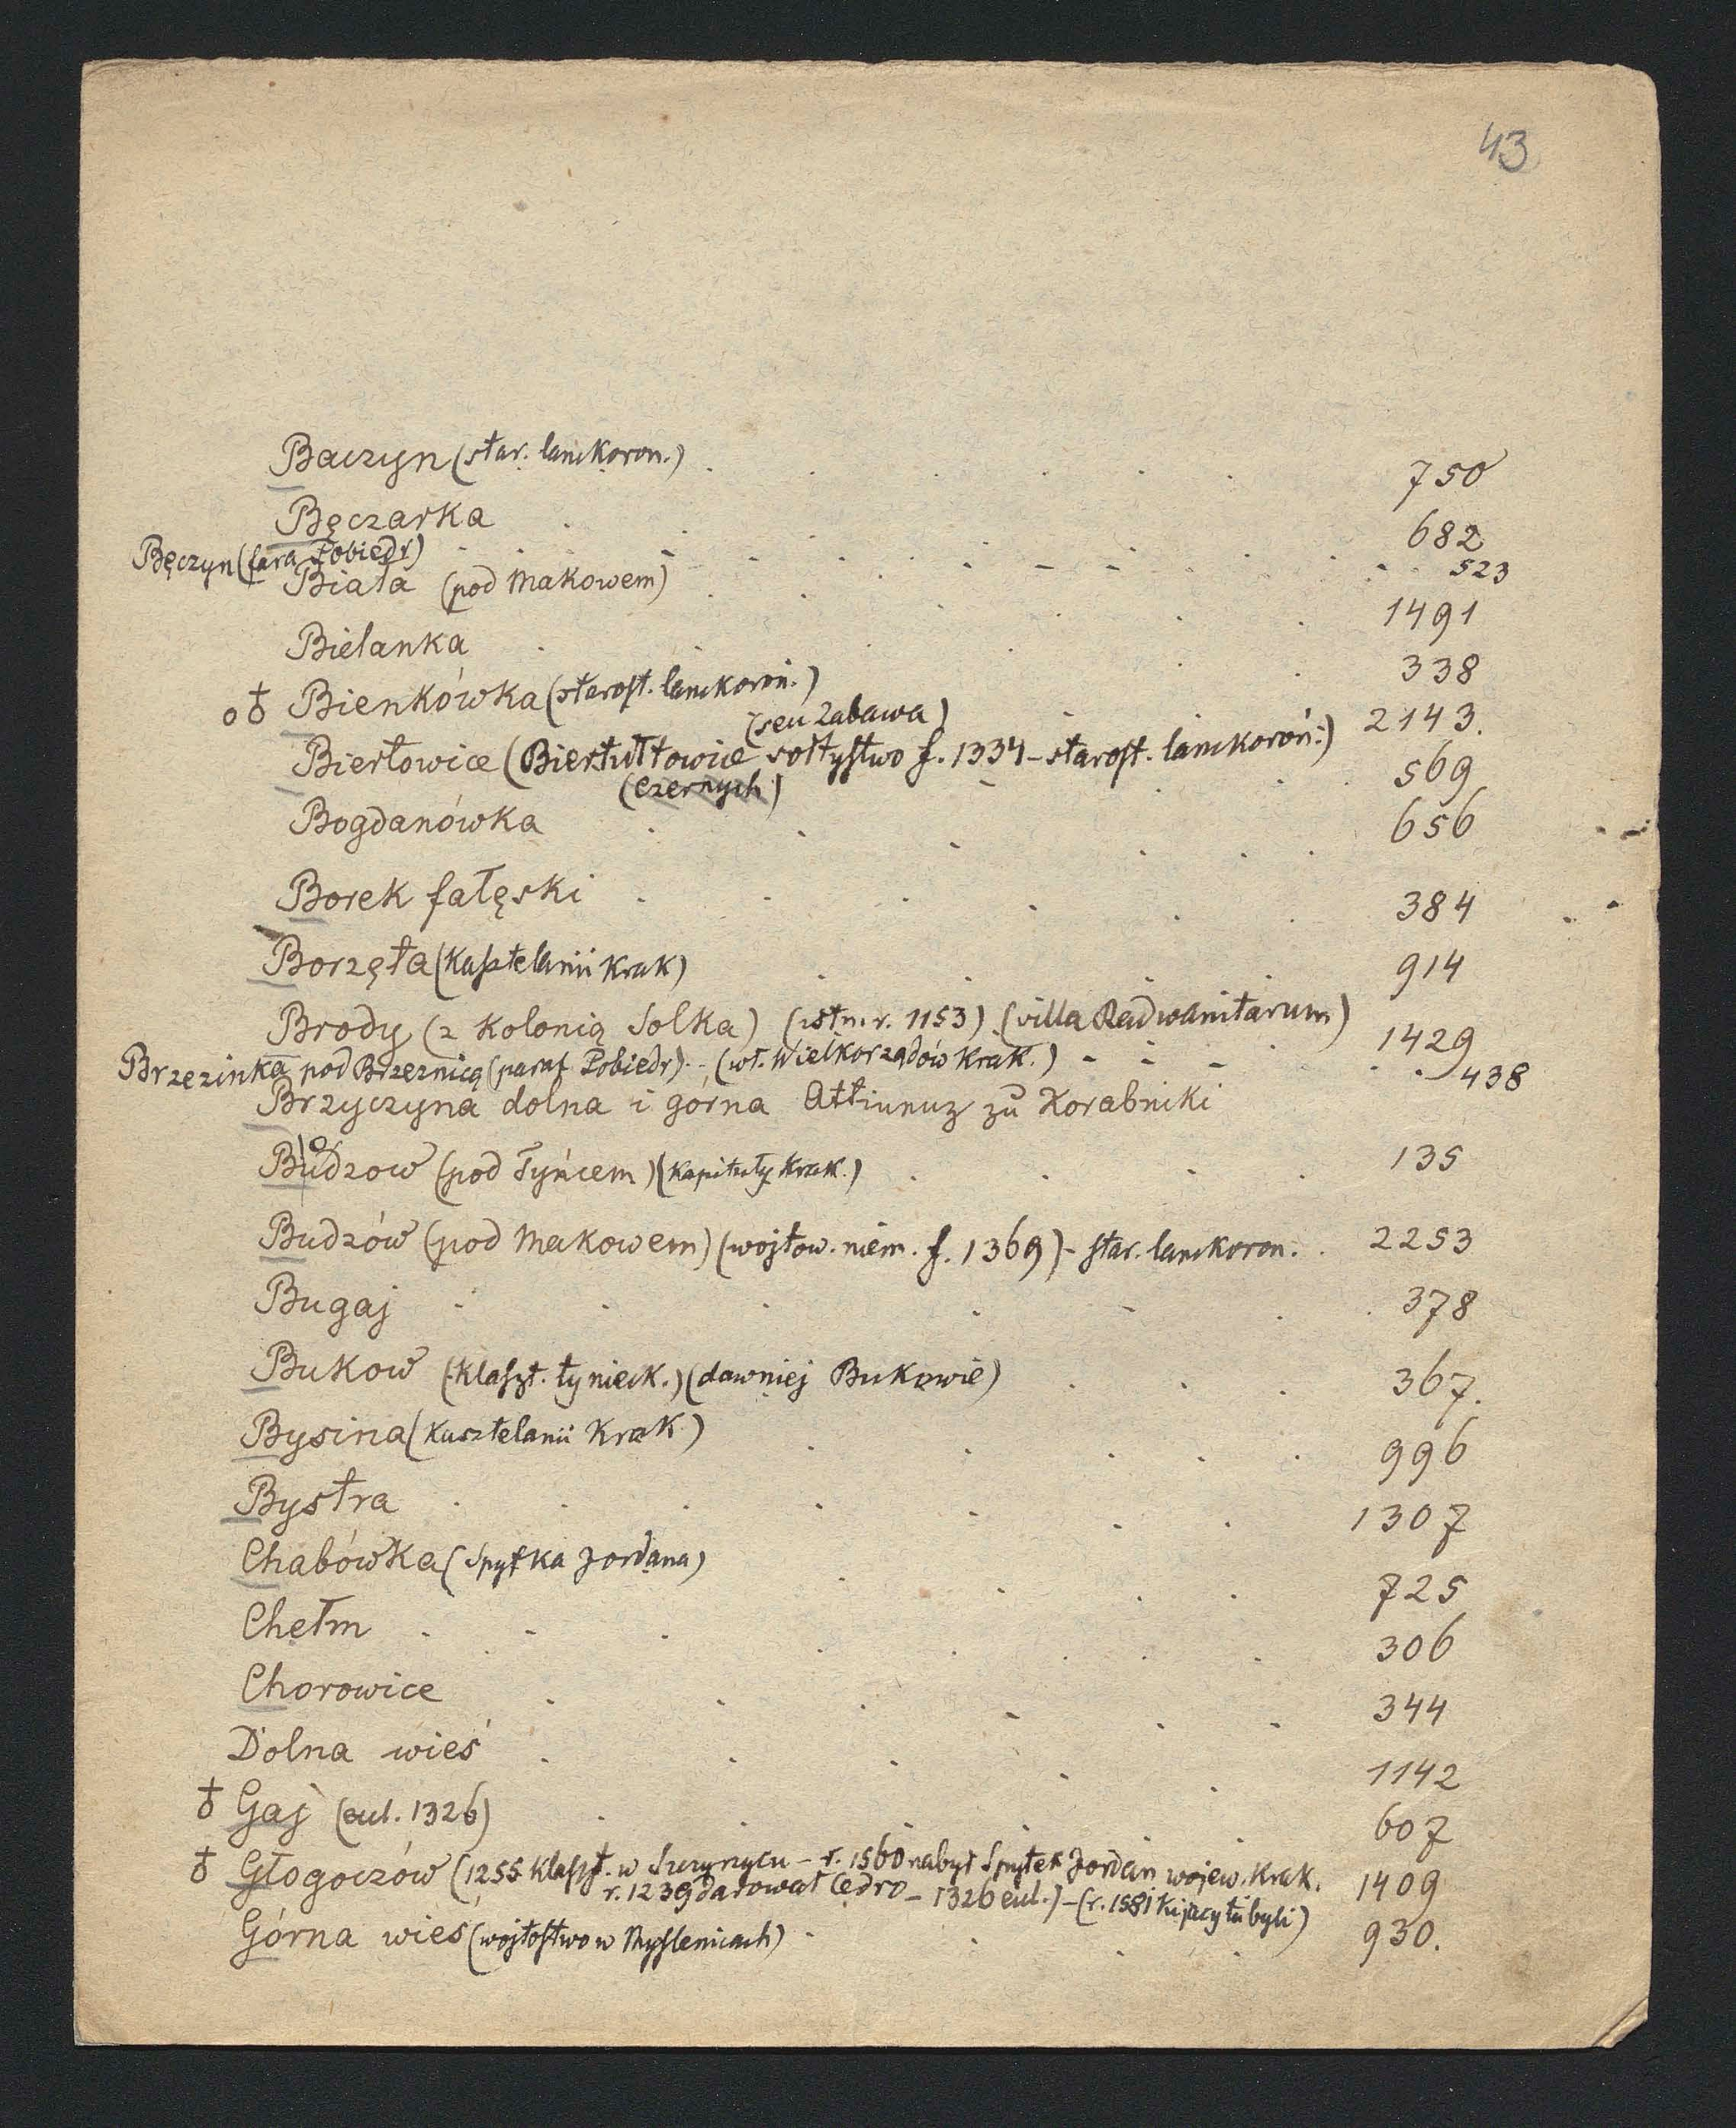 43
Baczyn (star. lanckoron.) 750
Bęczarka 682
Bęczyn (fara Pobiedr) 523
Biała (pod Makowem) 1491
Bielanka 338
Bieńkówka (starost. lanckoroń.) 2143.
(seu Zabawa)
Biertowice (Biertułtowice sołtystwo f. 1334 - starost. lanckoroń.) 569
(Czernych)
Bogdanówka 656
Borek fałęski 384
Borzęta (kasztelanii Krak) 914
Brody (z kolonią Solka) (istn. r. 1153) (villa Radwanitarum) 1429
Brzezinka pod Brzeznicą (paraf Pobiedr) - (wł. Wielkorządów Krak.) 438
Brzyczyna dolna i górna zu Korabniki
Budzow (pod Tyńcem) (Kapituły Krak.) 135
Budzów (pod Makowem) (wojtow. niem. f. 1369) - star. lanckoron. 2253
Bugaj 378
Bukow (klaszt. tynieck.) (dawniej Bukowie) 367.
Bysina (kasztelanii Krak) 996
Bystra 1307
Chabówka (Spytka Jordana) 725
Chełm 306
Chorowice 344
Dolna wieś 1142
♁ Gaj (eul. 1326) 607
♁ Głogoczów (1255 klaszt. w Szczyrzycu - r. 1560 nabył Spytek Jordan wojew. Krak. 1409
r. 1239 darował Cedro - 1326 eul.) - (r. 1581 Kijaccy tu byli)
Górna wieś (wojtostwo w Myslenicach) 930.